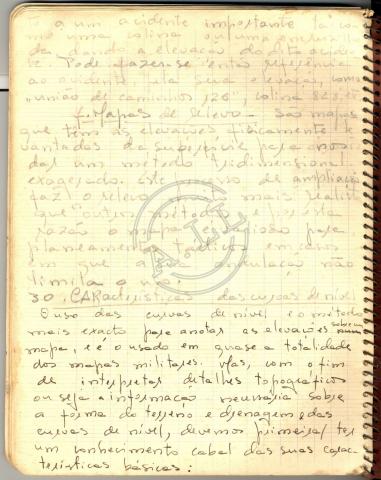 to a um acidente importante tal co
mo uma colina ou uma encruzilha
da dando a elevação do dito aciden
te. Pode fazer-se então referência
ao acidente pela sua elevação, como
"união de caminhos 126", colina
f. Mapas de relevo - são mapas
que têm as elevações fisicamente le
vantadas da superfície para nos
dar um método tridimensional
exagerado. Este processo de ampliação
faz o relevo mais realista
que outros métodos e por esta
razão o mapa é precioso para
planeamentos tácticos em casos
em que a sua não
limita o uso.
30. CARacterísticas das curvas de nível
O uso das curvas de nível, é o método
mais exacto para anotar as elevações sobre um
mapa, e é o usado em quase a totalidade
dos mapas militares. Mas, com o fim
de interpretar detalhes topográficos
ou seja a informação necessária sobre
a forma do terreno e drenagem, das
curvas de nível, devemos primeiro ter
um conhecimento cabal das suas carac
terísticas básicas: